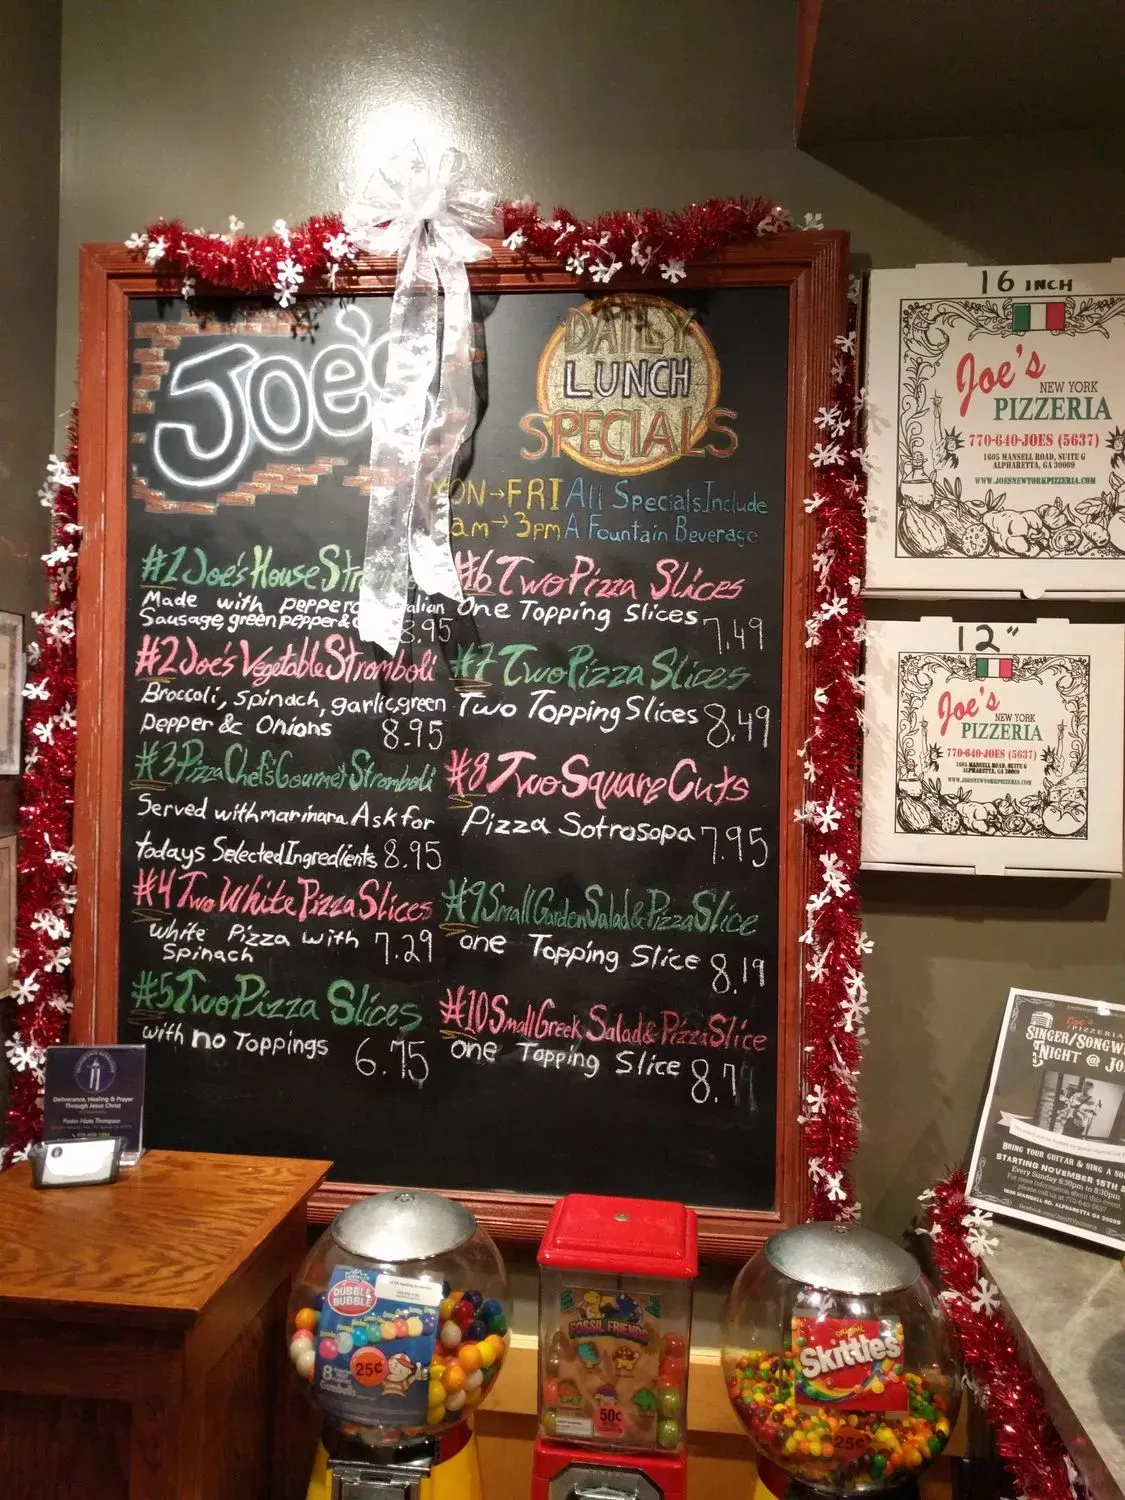 Joe's
DAILY
LUNCH
SPECIALS
MON→FRI All Specials Include
am→3pm A Fountain Beverage
#1 Joe's House
Made with
Sausage, green pepper &
8.95
#2 Joe's Vegetable Stromboli
Broccoli, Spinach, garlic, green
pepper & Onions 8.95
#3 Pizza Chef's Gourmet Stromboli
Served with marinara. Ask for
todays Selected Ingredients 8.95
#4 Two White Pizza Slices
White Pizza with 7.29
Spinach
#5 Two Pizza Slices
with no Toppings 6.75
#6 Two Pizza Slices
One Topping Slices 7.49
#7 Two Pizza Slices
Two Topping Slices 8.49
#8 Two Square Cuts
Pizza Sotrosopa 7.95
#9 Small Garden Salad & Pizza Slice
one Topping Slice 8.19
#10 Small Greek Salad & Pizza Slice
one Topping Slice
16 INCH
Joe's
NEW YORK
PIZZERIA
770-640-JOES (5637)
1605 MANSELL ROAD, SUITE G
ALPHARETTA, GA 30009
WWW.JOESNEWYORKPIZZERIA.COM
12"
Joe's
NEW YORK
PIZZERIA
770-640-JOES (5637)
1605 MANSELL ROAD, SUITE G
ALPHARETTA, GA 30009
WWW.JOESNEWYORKPIZZERIA.COM
Joe's
PIZZERIA
SINGER/SONGW
NIGHT @ JO
BRING YOUR GUITAR & SING A SO
STARTING NOVEMBER 15TH
Every Sunday 6:30pm to 8:30pm
For more information about this event,
please call us at 770-640-5637
1605 MANSELL RD. ALPHARETTA GA 30009
Deliverance, Healing & Prayer
Through Jesus Christ
Pastor Nate Thompson
DUBBLE
BUBBLE
25¢
8
Gumballs
FOSSIL FRIENDS
50¢
ORIGINAL
Skittles
25¢